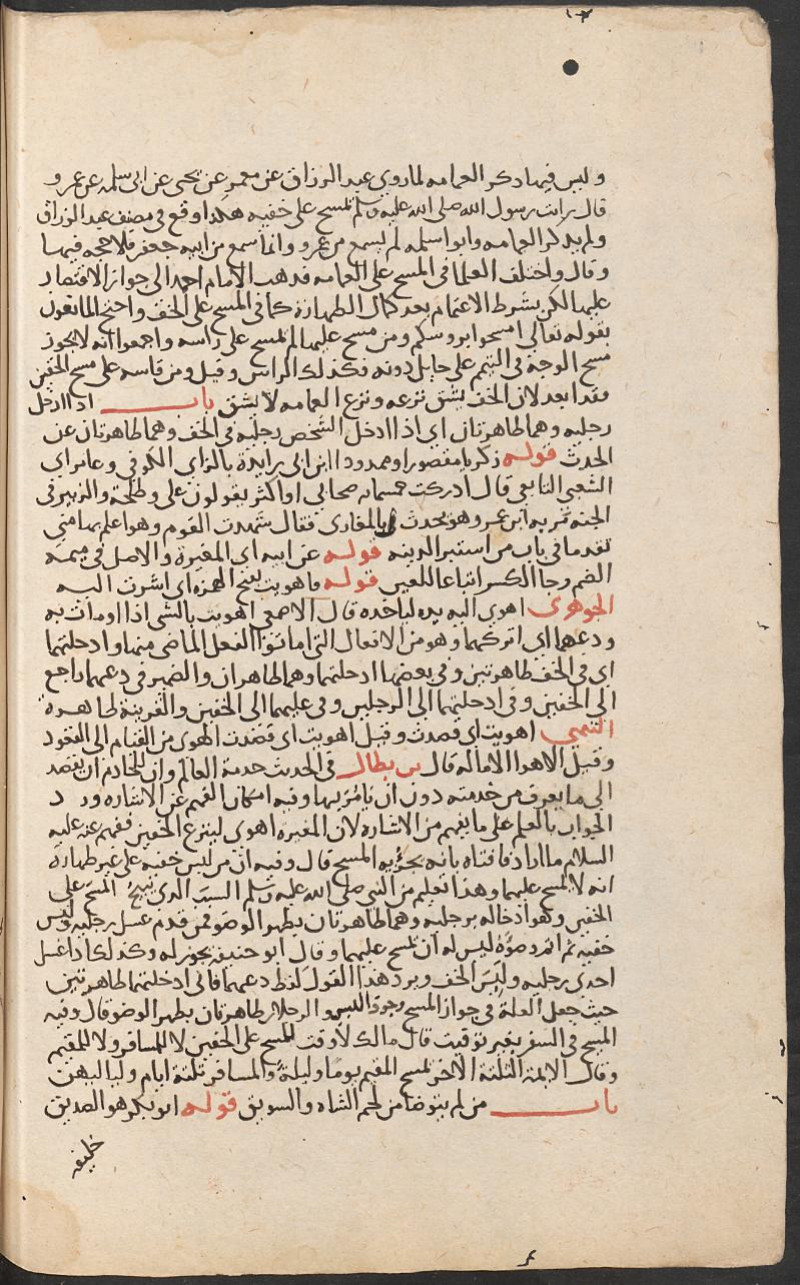 وليس فيها ذكر العمامه لما روي عبد الرزاق عن معمر عن يحيى عن ابي سلمه عن عمرو
قال رايت رسول الله صلى الله عليه وسلم يمسح على خفيه هكذا وقع في مصنف عبد الرزاق
ولم يذكر العمامه وابو اسلمه لم يسمع من عمرو وانما سمع من ابيه جعفر فلا حجه فيها
وقال واختلف العلما في المسح على العمامه فذهب الامام احمد الى جواز الاقتصار
عليها لكن بشرط الاعتمام بعد كمال الطهارة كما في المسح على الخف واحتج المانعون
بقوله تعالي امسحوا بروسكم ومن مسح عليها لم يمسح على راسه واجمعوا انه لا يجوز
مسح الوجه في التيمم على حايل دونه فكذلك الراس وقيل ومن قاسه على مسح الخفين
فقد ابعد لان الخف يشق نزعه ونزع العمامه لا يشق باب اذا ادخل
رجليه وهما طاهرتان اي اذا ادخل الشخص رجليه في الخف وهما طاهرتان عن
الحدث قوله زكريا مقصورا وممدودا ابن ابي زايدة بالزاي الكوفي وعامر اي
الشعبي التابعي قال ادركت خمسمايه صحابي او اكثر يقولون علي وطلحة والزبير في
الجنه مر به ابن عمر وهو يحدث بالمغازي فقال شهدت القوم وهو اعلم بها مني
تقدما في باب من استبرا لدينه قوله عن ابيه اي المغيرة والاصل في ميمه
الضم وجا الكسر اتباعا للعين قوله فاهويت بفتح الهمزه اي اشرت اليه
الجوهري اهوي اليه بيده لياخذه قال الاصمعي اهويت بالشي اذا اومات به
ودعهما اي اتركهما وهو من الافعال التي اماتوا الفعل الماضي منها وادخلتهما
اي في الخف طاهرتين وفي بعضها ادخلتهما وهما طاهران والضمير في دعهما راجع
الى الخفين وفي ادخلتهما الى الرجلين وفي عليهما الى الخفين والقرينة ظاهرة
التيمي اهويت اي قصدت وقيل اهويت اي قصدت الهوي من القيام الى القعود
وقيل الاهوا الاماله قال بن بطال في الحديث خدمة العالم وان للخادم ان يقصد
الى ما يعرف من خدمته دون ان يامر بها وفيه امكان الفهم عن الاشاره ورد
الجواب بالعلم على ما يفهم من الاشارة لان المغيره اهوى لينزع الخفين ففهم عنه عليه
السلام ما اراد فافتاه بانه يجزيه المسح قال وفيه ان من لبس خفيه على غير طهارة
انه لا يمسح عليهما وهذا تعليم من النبي صلى الله عليه وسلم السبب الذي يبيح المسح على
الخفين وهو ادخاله برجليه وهما طاهرتان بطهر الوضو فمن قدم غسل رجليه ولبس
خفيه ثم اتم وضوه ليس له ان يمسح عليهما وقال ابو حنيفه يجوز له وكذلك اذا غسل
احدي رجليه ولبس الخف ويرد هذا القول لفظ دعهما فاني ادخلتهما طاهرتين
حيث جعل العلة في جواز المسح وجود اللبس والرجلان طاهرتان بطهر الوضو قال وفيه
المسح في السفر بغير توقيت قال مالك لا وقت للمسح على الخفين لا للمسافر ولا للمقيم
وقال الايمة الثلثة الاخر يمسح المقيم يوما وليلة والمسافر ثلثة ايام ولياليهن
باب من لم يتوضا من لحم الشاه والسويق قوله ابو بكر هو الصديق
خليفه